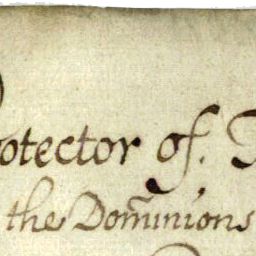 otector of.
the Dom̄inions